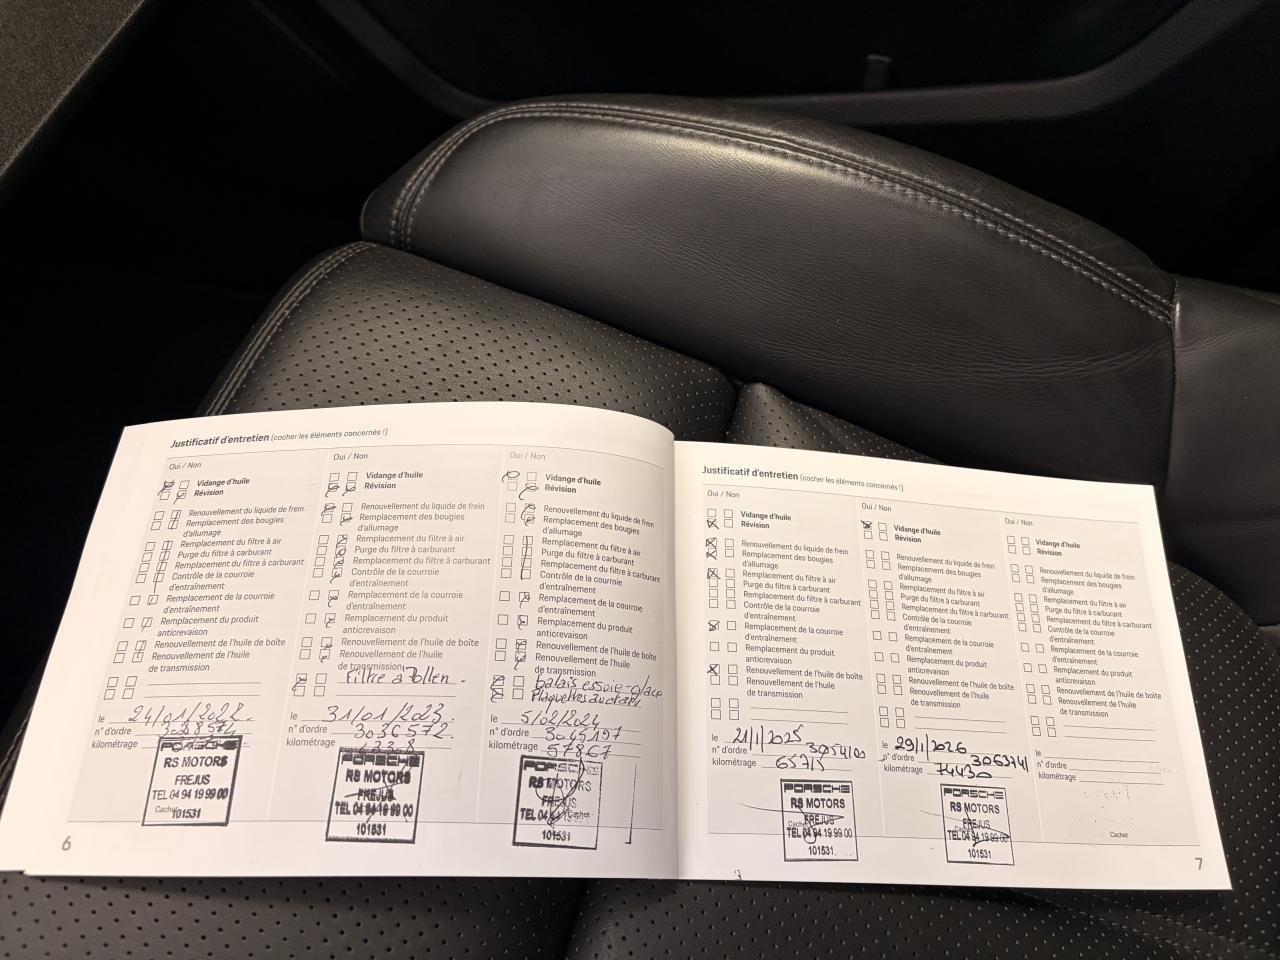 Justificatif d'entretien (cocher les éléments concernés !)
Oui / Non
Vidange d'huile
Révision
Renouvellement du liquide de frein
Remplacement des bougies
d'allumage
Remplacement du filtre à air
Purge du filtre à carburant
Remplacement du filtre à carburant
Contrôle de la courroie
d'entraînement
Remplacement de la courroie
d'entraînement
Remplacement du produit
anticrevaison
Renouvellement de l'huile de boîte
Renouvellement de l'huile
de transmission
le
n° d'ordre
kilométrage
PORSCHE
RS MOTORS
FREJUS
TEL 04 94 19 99 00
Cachet
101531
Oui / Non
Vidange d'huile
Révision
Renouvellement du liquide de frein
Remplacement des bougies
d'allumage
Remplacement du filtre à air
Purge du filtre à carburant
Remplacement du filtre à carburant
Contrôle de la courroie
d'entraînement
Remplacement de la courroie
d'entraînement
Remplacement du produit
anticrevaison
Renouvellement de l'huile de boîte
Renouvellement de l'huile
de transmission
Filtre a Pollen.
le 31/01/2023.
n° d'ordre 3036572.
kilométrage
PORSCHE
RS MOTORS
FREJUS
TEL 04 94 19 99 00
101531
Oui / Non
Vidange d'huile
Révision
Renouvellement du liquide de frein
Remplacement des bougies
d'allumage
Remplacement du filtre à air
Purge du filtre à carburant
Remplacement du filtre à carburant
Contrôle de la courroie
d'entraînement
Remplacement de la courroie
d'entraînement
Remplacement du produit
anticrevaison
Renouvellement de l'huile de boîte
Renouvellement de l'huile
de transmission
balais essuie-glace
Plaquettes
le 5/02/2024
n° d'ordre 3045197
kilométrage 57867
PORSCHE
RS MOTORS
FREJUS
TEL 04
Cachet
101531
6
Justificatif d'entretien (cocher les éléments concernés !)
Oui / Non
Vidange d'huile
Révision
Renouvellement du liquide de frein
Remplacement des bougies
d'allumage
Remplacement du filtre à air
Purge du filtre à carburant
Remplacement du filtre à carburant
Contrôle de la courroie
d'entraînement
Remplacement de la courroie
d'entraînement
Remplacement du produit
anticrevaison
Renouvellement de l'huile de boîte
Renouvellement de l'huile
de transmission
le 21/1/2025
n° d'ordre 3054100
kilométrage 65715
PORSCHE
RS MOTORS
FREJUS
Cachet
TEL 04 94 19 99 00
101531
Oui / Non
Vidange d'huile
Révision
Renouvellement du liquide de frein
Remplacement des bougies
d'allumage
Remplacement du filtre à air
Purge du filtre à carburant
Remplacement du filtre à carburant
Contrôle de la courroie
d'entraînement
Remplacement de la courroie
d'entraînement
Remplacement du produit
anticrevaison
Renouvellement de l'huile de boîte
Renouvellement de l'huile
de transmission
le 29/1/2026
n° d'ordre 3063741
kilométrage 74430
PORSCHE
RS MOTORS
FREJUS
TEL 04 94 19 99 00
101531
Oui / Non
Vidange d'huile
Révision
Renouvellement du liquide de frein
Remplacement des bougies
d'allumage
Remplacement du filtre à air
Purge du filtre à carburant
Remplacement du filtre à carburant
Contrôle de la courroie
d'entraînement
Remplacement de la courroie
d'entraînement
Remplacement du produit
anticrevaison
Renouvellement de l'huile de boîte
Renouvellement de l'huile
de transmission
le
n° d'ordre
kilométrage
Cachet
7